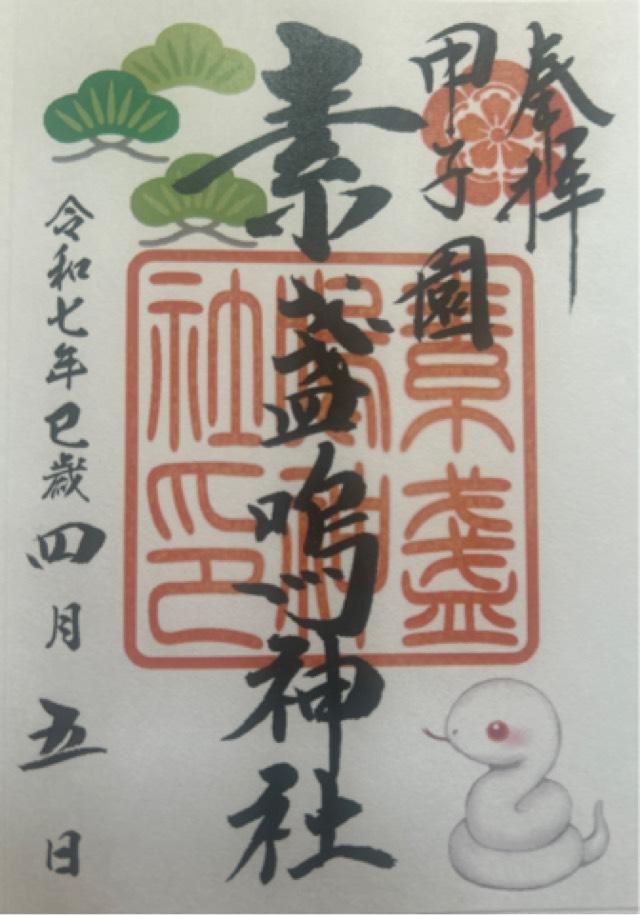 奉拝
甲子園
素盞嗚神社
素盞
嗚神
社印
令和七年巳歳四月五日